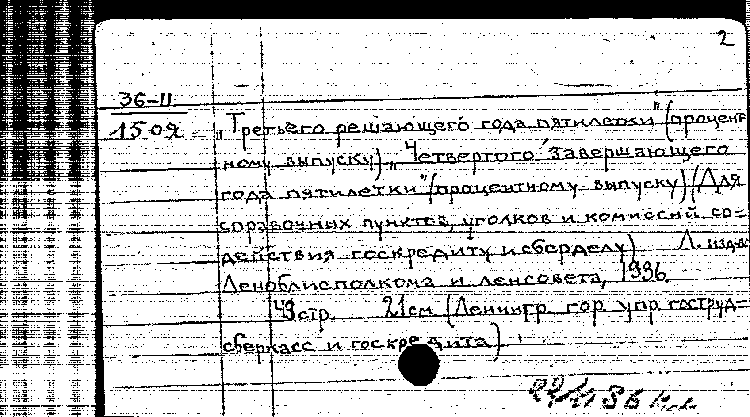 2
36-II
1509 „Третьего решающего года пятилетки" (процент
ному выпуску) „Четвертого завершающего
года пятилетки" (процентному выпуску) (Для
справочных пунктов, уголков и комиссий со-
действия госкредиту и сберделу) Л. изд-во
Леноблисполкома и Ленсовета, 1936.
49 стр. 21 см (Ленингр. гор. упр. гоструд-
сберкасс и госкредита)